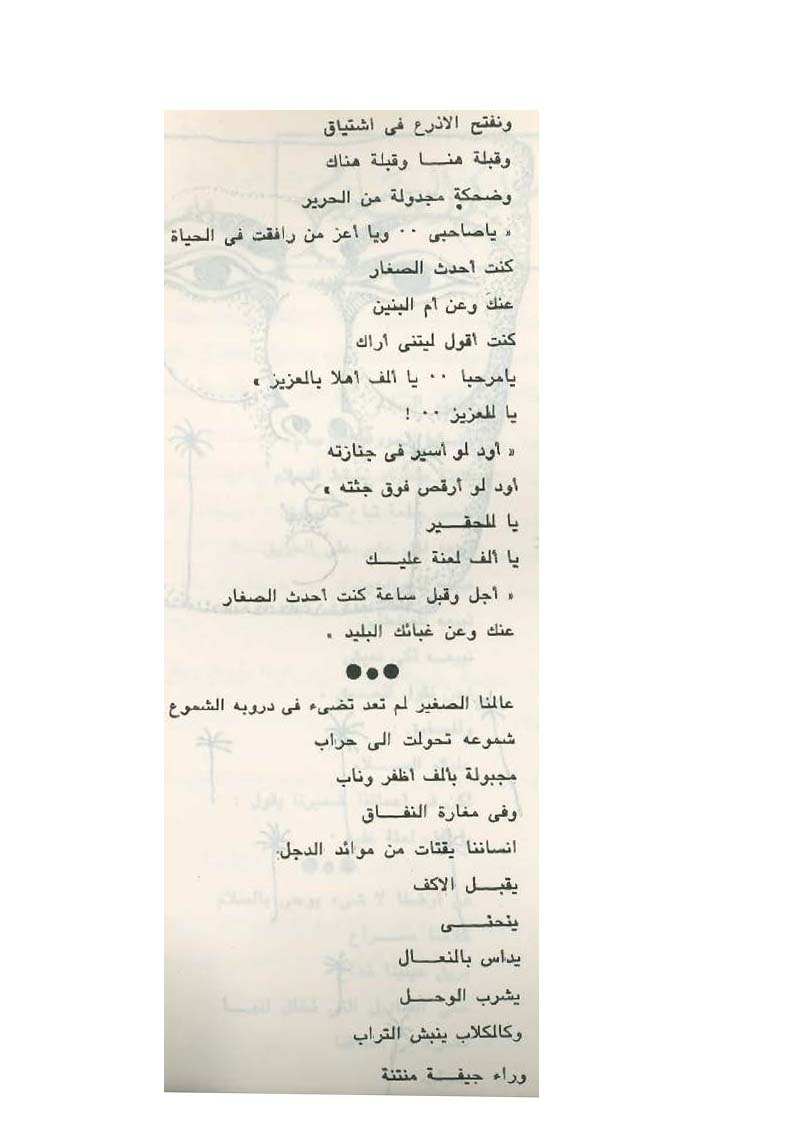 ونفتح الاذرع فى اشتياق
وقبلة هنـــا وقبلة هناك
وضحكة مجدولة من الحرير
« ياصاحبى ٠٠ ويا أعز من رافقت فى الحياة
كنت أحدث الصغار
عنك وعن أم البنين
كنت أقول ليتنى أراك
يامرحبا ٠٠ يا ألف أهلا بالعزيز »
يا للعزيز ٠٠ !
« أود لو أسير فى جنازته
أود لو أرقص فوق جثته »
يا للحقـــير
يا ألف لعنة عليـــك
« أجل وقبل ساعة كنت أحدث الصغار
عنك وعن غبائك البليد »
●●●
عالمنا الصغير لم تعد تضىء فى دروبه الشموع
شموعه تحولت الى حراب
مجبولة بألف أظفر وناب
وفى مغارة النفـــاق
انساننا يقتات من موائد الدجل
يقبـــل الاكف
ينحنـــــى
يداس بالنعـــال
يشرب الوحـــل
وكالكلاب ينبش التراب
وراء جيفـــة منتنة